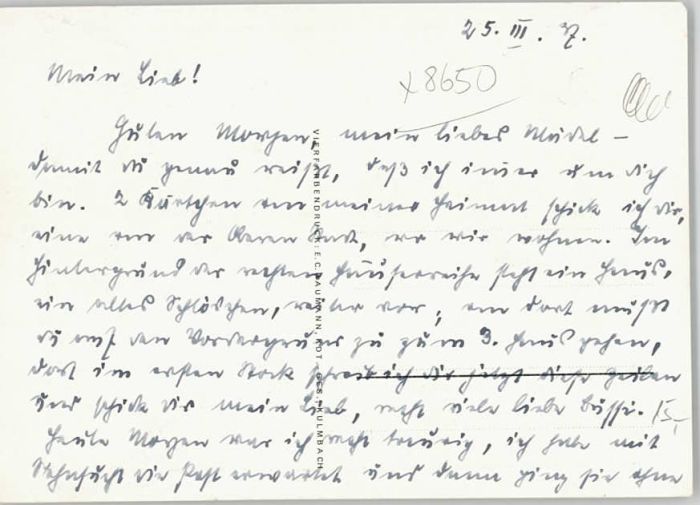 25. III. 37.
x 8650
Mein Lieb!
Guten Morgen, mein liebes Mädel –
damit du genau weißt, daß ich immer um dich
bin. 2 Kärtchen von meiner Heimat schick ich dir,
eine von der Stadt, wo wir wohnen. Im
Hintergrund der rechten Häuserreihe steht ein Haus,
ein altes Schlösschen, weiter vor, von dort mußt
du auf den Vordergrund zu zum 3. Haus gehen,
dort im ersten Stock schreib ich dir jetzt diese Zeilen
und schicke dir mein Lieb, recht viele liebe Bussi.
Heute Morgen war ich recht traurig, ich habe mit
Sehnsucht die Post erwartet und dann ging sie ohne
VIERFARBENDRUCK: E.C. BAUMANN, KOM.-GES. KULMBACH